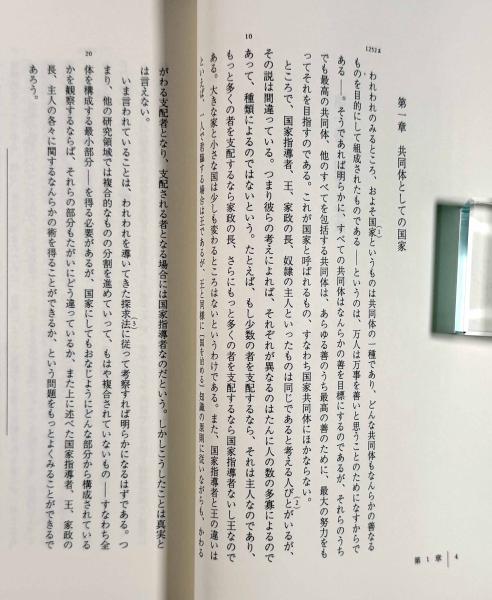 第一章　共同体としての国家
1252a
われわれのみるところ、およそ国家というものは共同体の一種であり、どんな共同体もなんらかの善なる
ものを目的にして組成されたものである――というのは、万人は万事を善いと思うことのためになすからで
ある――。そうであれば明らかに、すべての共同体はなんらかの善を目標にするのであるが、それらのうち
でも最高の共同体、他のすべてを包括する共同体は、あらゆる善のうち最高の善のために、最大の努力をも
ってそれを目指すのである。これが国家と呼ばれるもの、すなわち国家共同体にほかならない。
ところで、国家指導者、王、家政の長、奴隷の主人といったものは同じであると考える人びとがいるが、
その説は間違っている。つまり彼らの考えによれば、それぞれが異なるのはたんに人の数の多寡によるので
10
あって、種類によるのではないという。たとえば、もし少数の者を支配するなら、それは主人なのであり、
もっと多くの者を支配するなら家政の長、さらにもっと多くの者を支配するなら国家指導者ないし王なので
ある。大きな家と小さな国は少しも変わるところはないというわけである。また、国家指導者と王の違いは
といえば、一人で君臨する場合は王であるが、王と同様に知識の原則に従いながらも、かわる
第1章
4
がわる支配者となり、支配される者となる場合には国家指導者なのだという。しかしこうしたことは真実と
は言えない。
いま言われていることは、われわれを導いてきた探求法に従って考察すれば明らかになるはずである。つ
まり、他の研究領域では複合的なものの分割を進めていって、もはや複合されていないもの――すなわち全
20
体を構成する最小部分――を得る必要があるが、国家にしてもおなじようにどんな部分から構成されている
かを観察するならば、それらの部分もたがいにどう違っているか、また上に述べた国家指導者、王、家政の
長、主人の各々に関するなんらかの術を得ることができるか、という問題をもっとよくみることができるで
あろう。